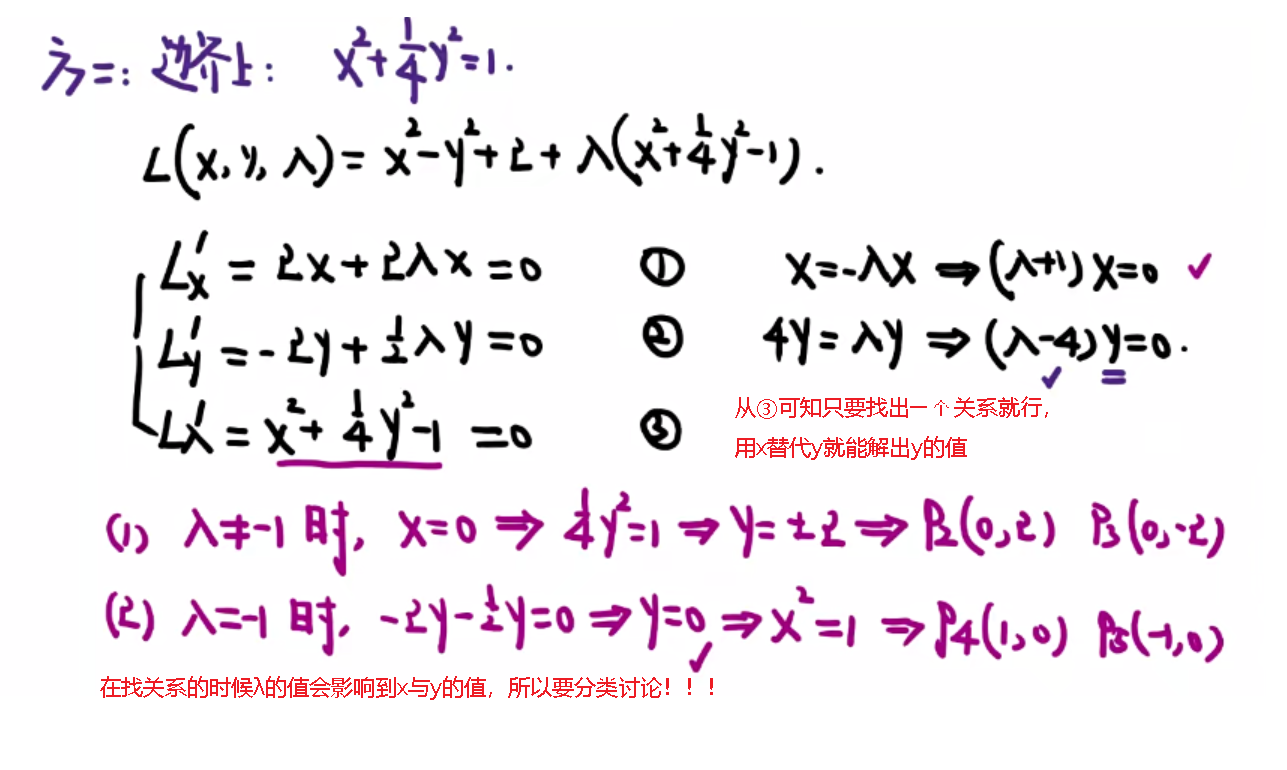 方二: 边界上: x²+¼y²=1.
L(x, y, λ)= x²-y²+2+λ(x²+¼y²-1).
L'x = 2x+2λx=0 ① x=-λx ⇒(λ+1)x=0 ✓
L'y =-2y+½λy=0 ② 4y=λy ⇒(λ-4)y=0.
L'λ = x²+¼y²-1=0 ③
从③可知只要找出一个关系就行,
用x替代y就能解出y的值
(1) λ≠-1时, x=0⇒¼y²=1⇒y=±2⇒P2(0,2) P3(0,-2)
(2) λ=-1时, -2y-½y=0⇒y=0⇒x²=1⇒P4(1,0) P5(-1,0)
在找关系的时候λ的值会影响到x与y的值, 所以要分类讨论!!!